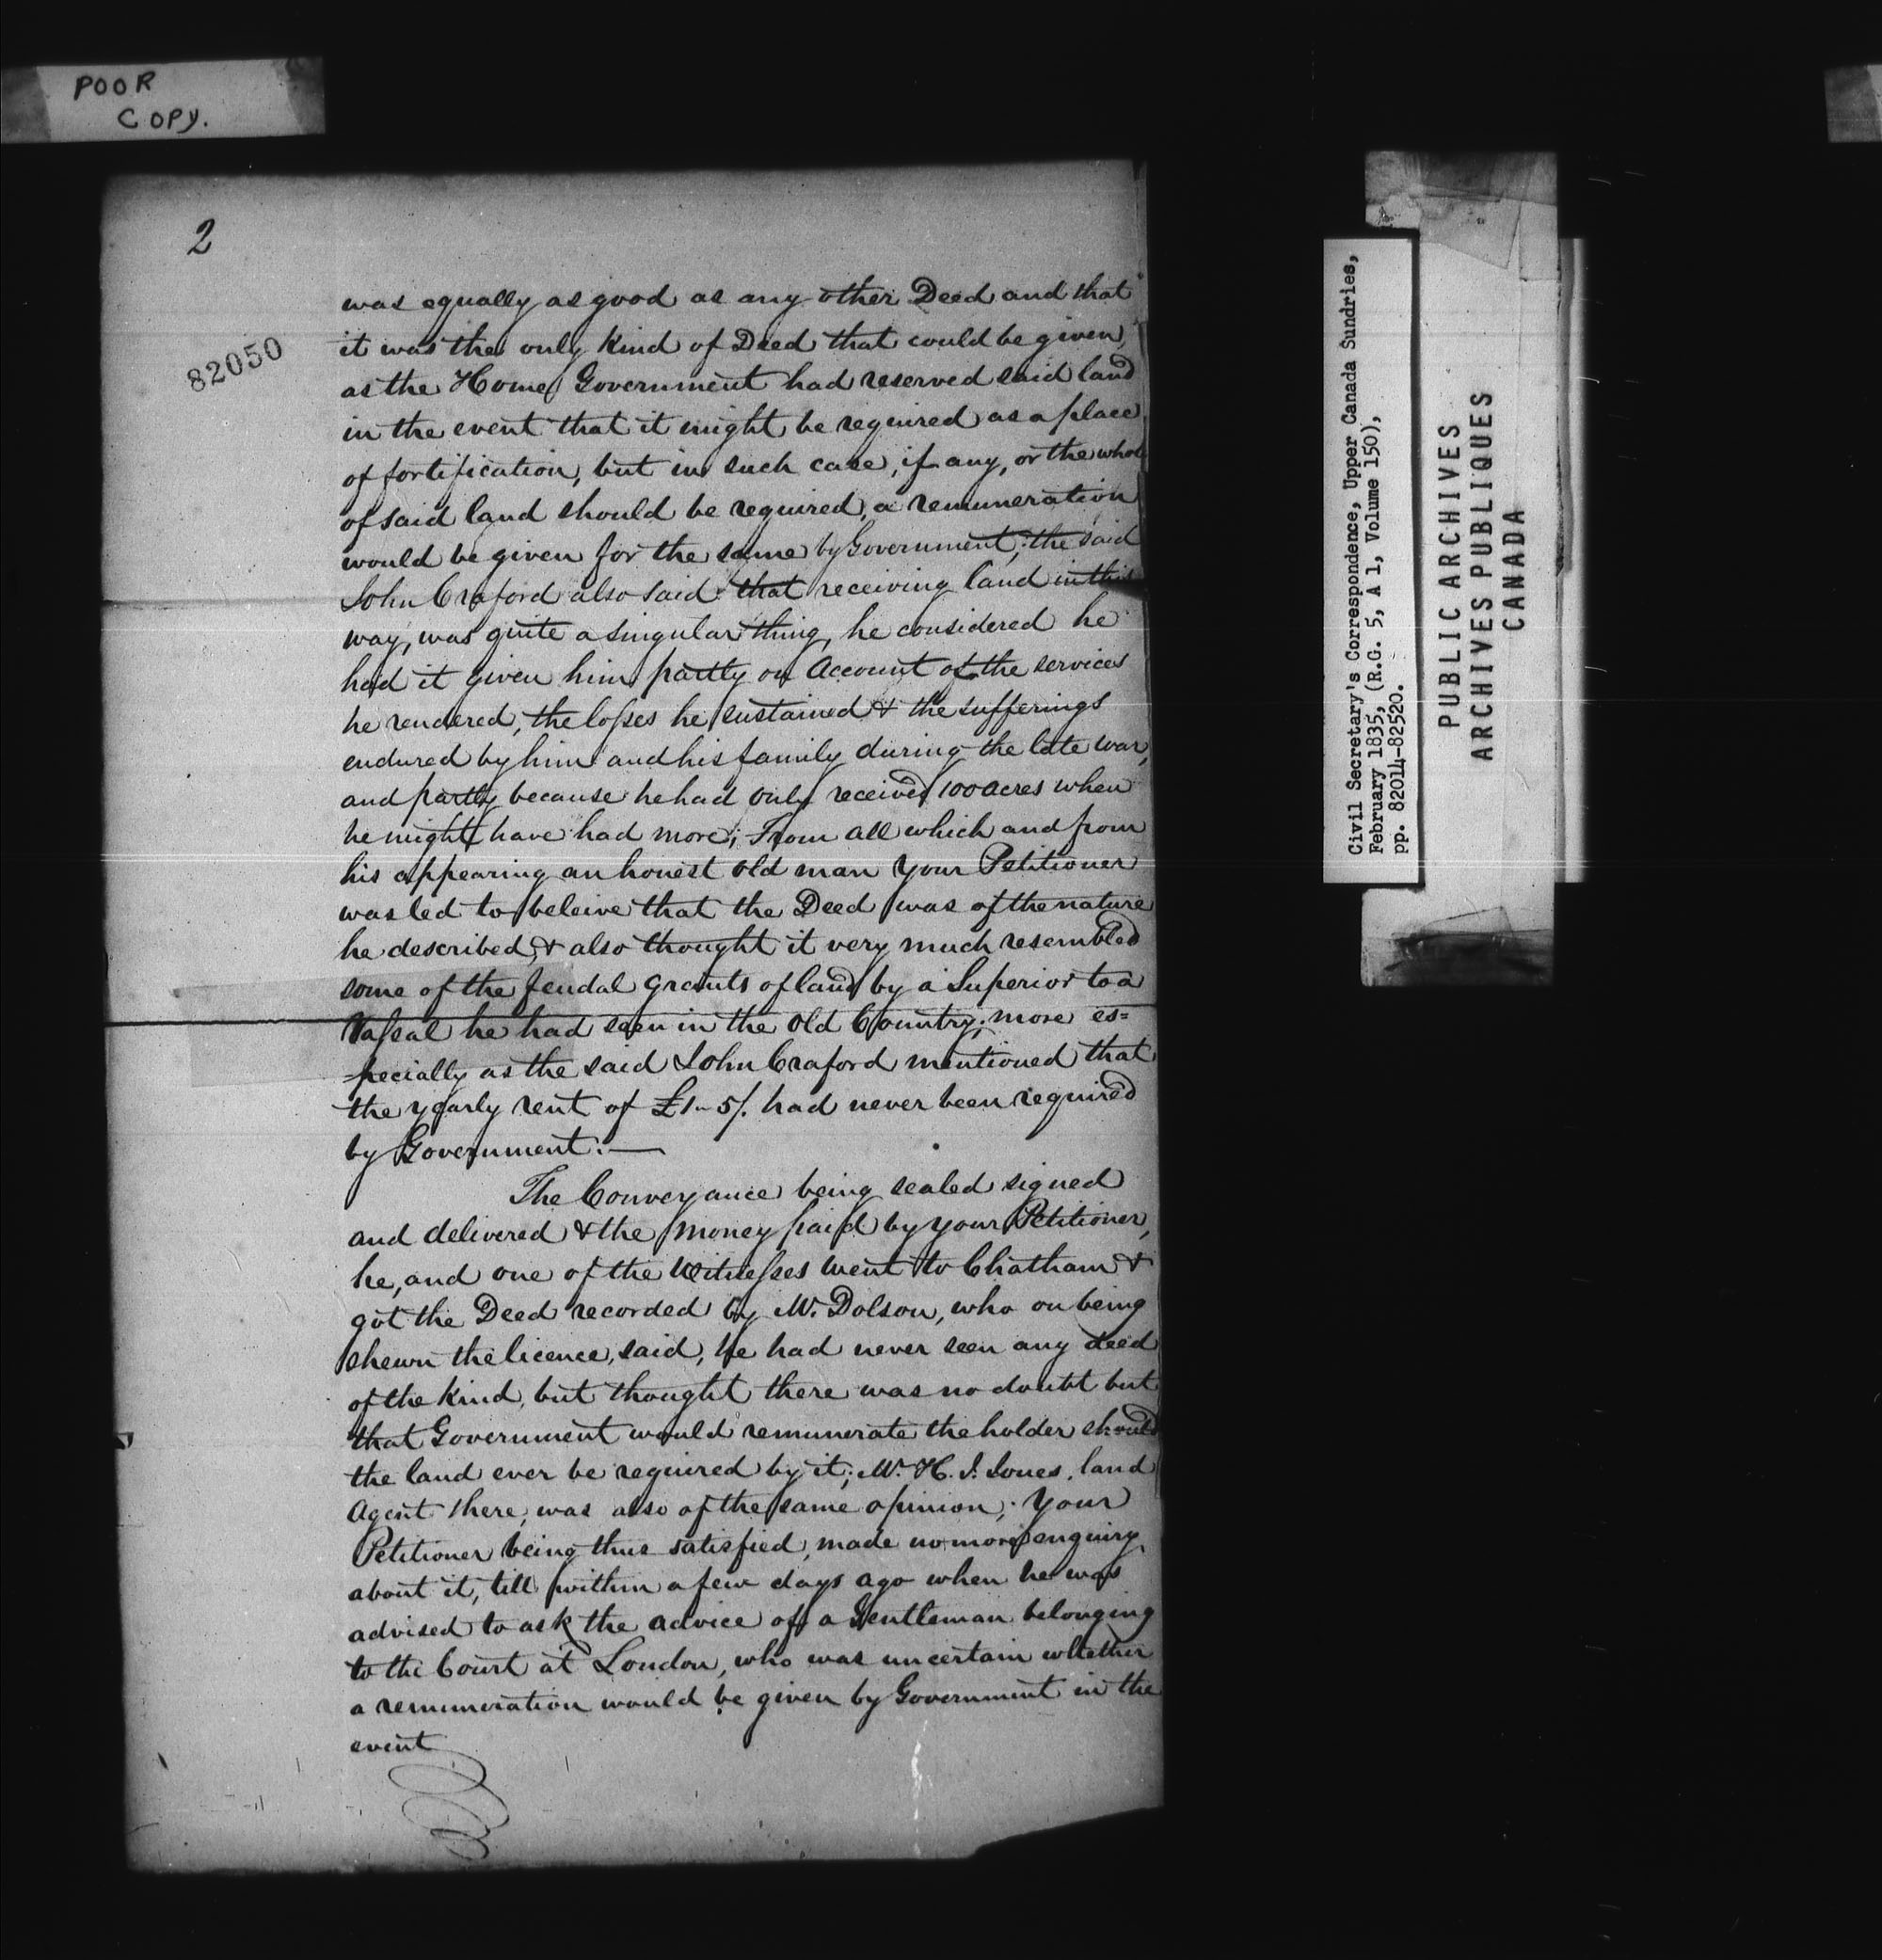 POOR
COPY.
2
82050
was equally as good as any other Deed and that
it was the only kind of Deed that could be given,
as the Home Government had reserved said land
in the event that it might be required as a place
of fortification, but in such case, if any, or the whole
of said land should be required, a remuneration
would be given for the same by Government; the said
John Craford also said that receiving land in this
way, was quite a singular thing, he considered he
had it given him partly on Account of the services
he rendered, the losses he sustained & the sufferings
endured by him and his family during the late war,
and partly because he had only received 100 acres when
he might have had more; From all which and from
his appearing an honest old man your Petitioner
was led to beleive that the Deed was of the nature
he described, & also thought it very much resembled
some of the feudal grants of land by a Superior to a
Vassal he had seen in the Old Country; more es=
=pecially as the said John Craford mentioned that
the yearly rent of £1-5/. had never been required
by Government.—
The Conveyance being sealed signed
and delivered & the money paid by your Petitioner,
he, and one of the Witnesses went to Chatham &
got the Deed recorded by Mr. Dolson, who on being
shewn the licence, said, he had never seen any deed
of the kind, but thought there was no doubt but
that Government would remunerate the holder should
the land ever be required by it; Mr. H. J. Jones, land
Agent there, was also of the same opinion; Your
Petitioner being thus satisfied, made no more enquiry
about it, till within a few days ago when he was
advised to ask the advice of a Gentleman belonging
to the Court at London, who was uncertain whether
a remuneration would be given by Government in the
event
Civil Secretary's Correspondence, Upper Canada Sundries,
February 1835, (R.G. 5, A 1, Volume 150),
pp. 82014-82520.
PUBLIC ARCHIVES
ARCHIVES PUBLIQUES
CANADA